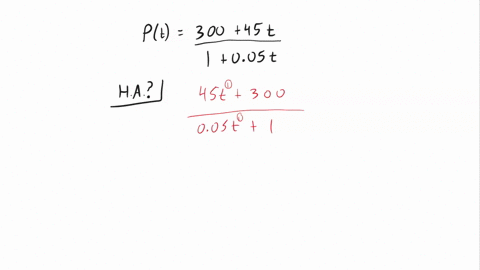 P(t) = 300 + 45t / 1 + 0.05t
H.A.? 45t^① + 300 / 0.05t^① + 1